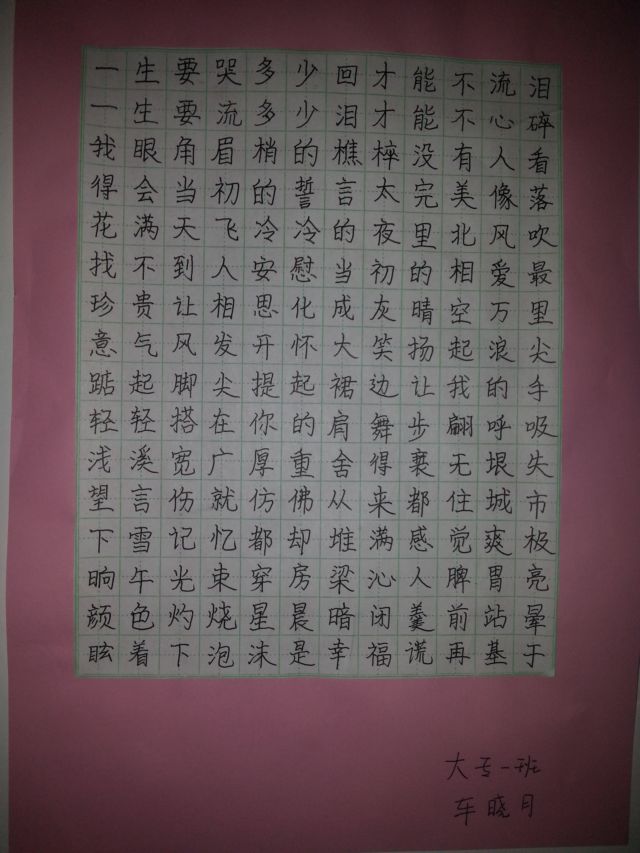 一生要哭多少回才能不流泪
一生要流多少泪才能不心碎
我眼角眉梢的樵梓没有人看
得会当初的誓言太完美像落
花满天飞冷冷的夜里北风吹
找不到人安慰当初的相爱最
珍贵让相思化成灰晴空万里
意气风发开怀大笑扬起浪尖
踮起脚尖提起裙边让我的手
轻轻搭在你的肩舞步翩呼吸
浅溪宽广厚重舍得衰无垠失
望言伤就仿佛从来都住城市
下雪记忆都却堆满感觉爽极
晌午光束穿房梁沁人脾胃亮
颜色灼烧星晨暗闭羹前站晕
眩着下泡沫是幸福谎再基于
大专一班
车晓月